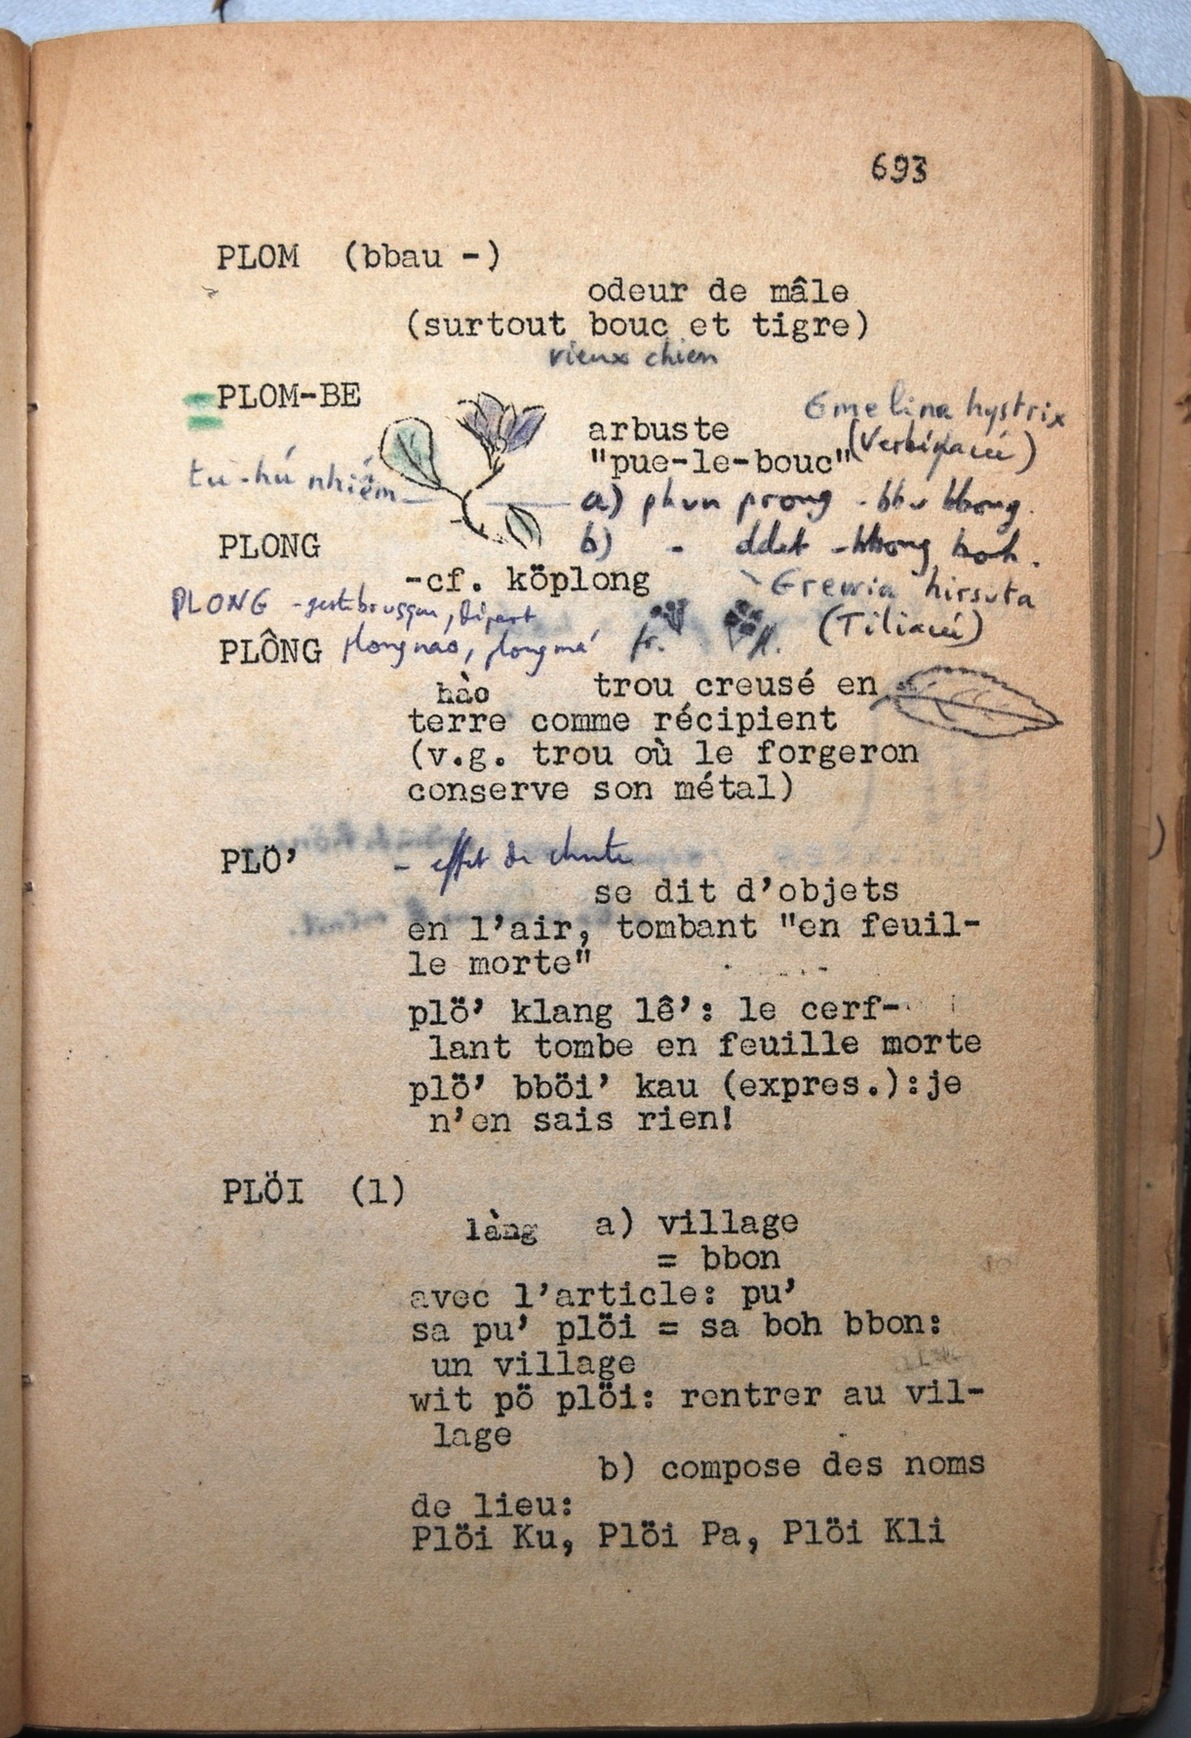 693
PLOM (bbau -)
odeur de mâle
(surtout bouc et tigre)
vieux chien
PLOM-BE
Gmelina hystrix
arbuste
"pue-le-bouc"
tu-hú nhiếm
a) phun prong - bbu bbong.
PLONG
b) - ddet - bbong boh.
-cf. köplong
Grewia hirsuta
PLONG - geste brusque, départ
(Tiliacée)
PLÔNG plong nao, plong mă fr. fl.
hào trou creusé en
terre comme récipient
(v.g. trou où le forgeron
conserve son métal)
PLÖ' - effet de chute
se dit d'objets
en l'air, tombant "en feuil-
le morte"
plö' klang lê': le cerf-
lant tombe en feuille morte
plö' bböi' kau (expres.):je
n'en sais rien!
PLÖI (1)
làng a) village
= bbon
avec l'article: pu'
sa pu' plöi = sa boh bbon:
un village
wit pö plöi: rentrer au vil-
lage
b) compose des noms
de lieu:
Plöi Ku, Plöi Pa, Plöi Kli